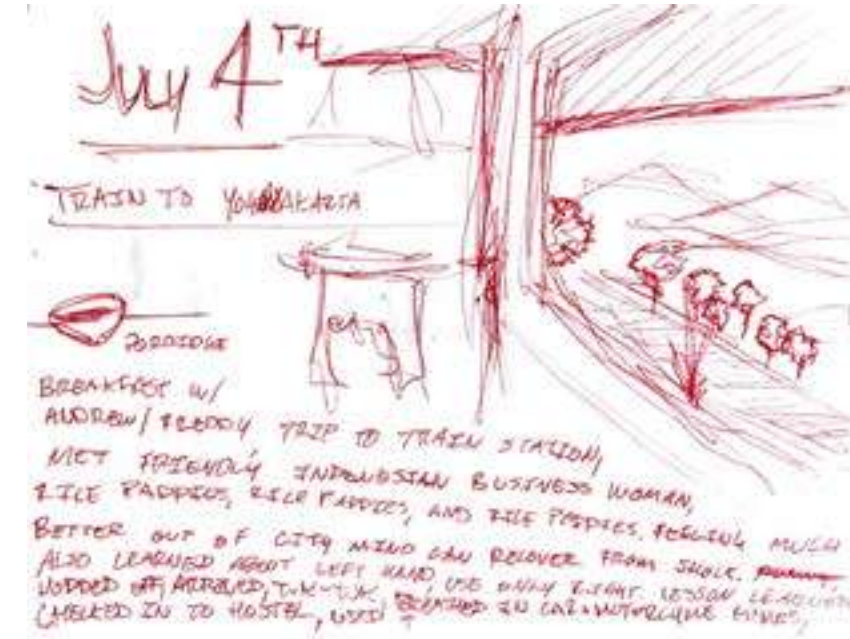 July 4TH
TRAIN TO YOGYAKARTA
PORRIDGE
BREAKFAST W/
ANDREW/FREDDY TRIP TO TRAIN STATION,
MET FRIENDLY INDONESIAN BUSINESS WOMAN,
RICE PADDIES, RICE PADDIES, AND RICE PADDIES. FEELING MUCH
BETTER OUT OF CITY MIND CAN RECOVER FROM SHOCK.
ALSO LEARNED ABOUT LEFT HAND, USE ONLY RIGHT. LESSON LEARNED
NODDED OFF, ARRIVED, TUK-TUK.
CHECKED IN TO HOSTEL, USED BREATHED IN